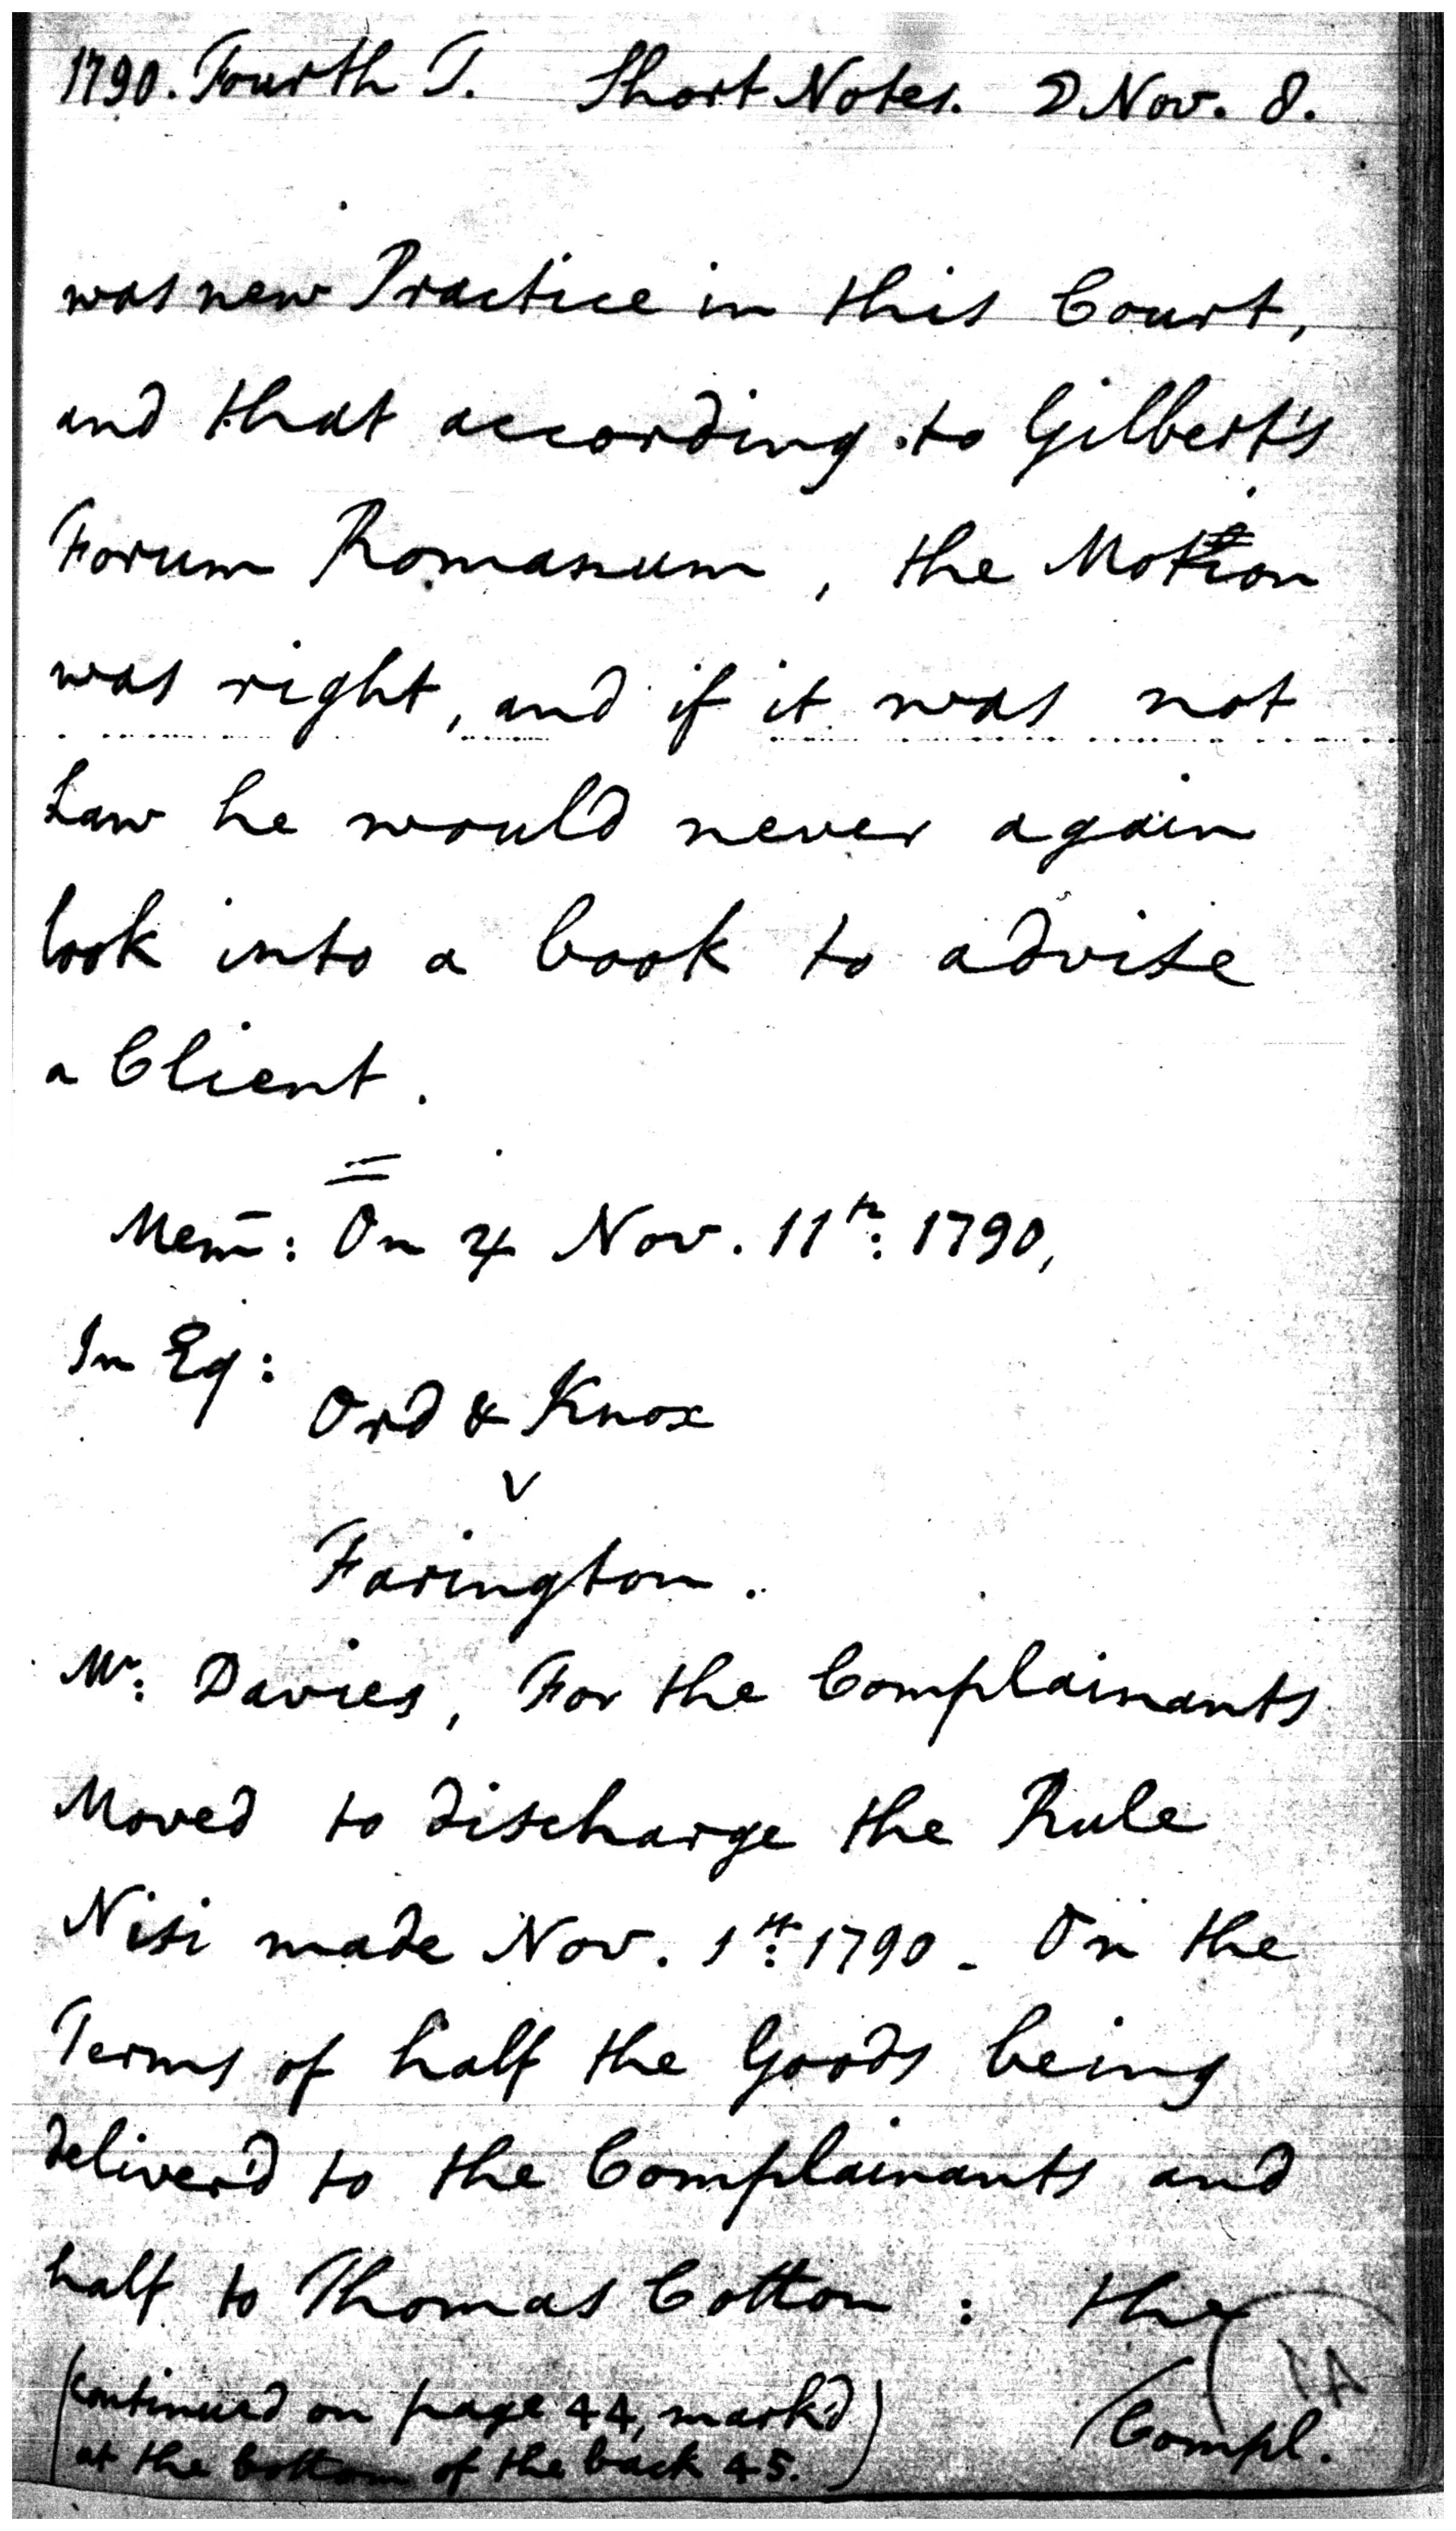 1790. Fourth T. Short Notes. ☽ Nov. 8.
was new Practice in this Court,
and that according to Gilbert's
Forum Romanum, the Motion
was right, and if it was not
Law he would never again
look into a book to advise
a Client.
Mem̄: On ♃ Nov. 11th: 1790,
In Eq:
Ord & Knox
v
Farington.
Mr: Davies, For the Complainants
Moved to discharge the Rule
Nisi made Nov. 1st: 1790 - On the
Terms of half the Goods being
deliver'd to the Complainants and
half to Thomas Cotton : the
(continued on page 44, mark'd
at the bottom of the back 45.)
Compl.